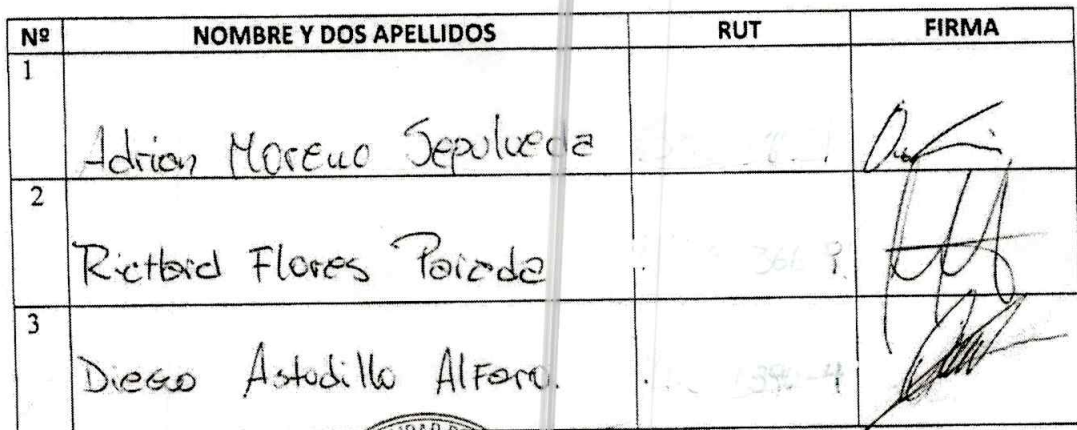 Nº NOMBRE Y DOS APELLIDOS RUT FIRMA
1
Adrian Moreno Sepulveda
2
Richard Flores Parada 366 9
3
Diego Astudillo Alfaro. 390-4